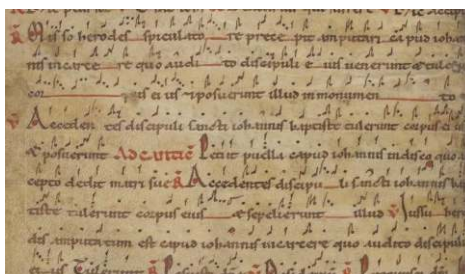 Misso herodes speculato re precepit amputari capud iohan
nis in carce re quo audi to discipuli e ius uenerunt & tuler
cor us ei us & posuerunt illud in monumen to
V Acceden tes discipuli sancti iohannis baptiste tulerunt corpus ei
& posuerunt Petiit puella capud iohannis in disco quo
cepto dedit matri sue R Accedentes discipu li sancti iohannis ba
tiste tulerunt corpus eius & sepelierunt illud V Iussu hero
dis amputatum est capud iohannis in carcere quo audito discipuli
Tulerunt